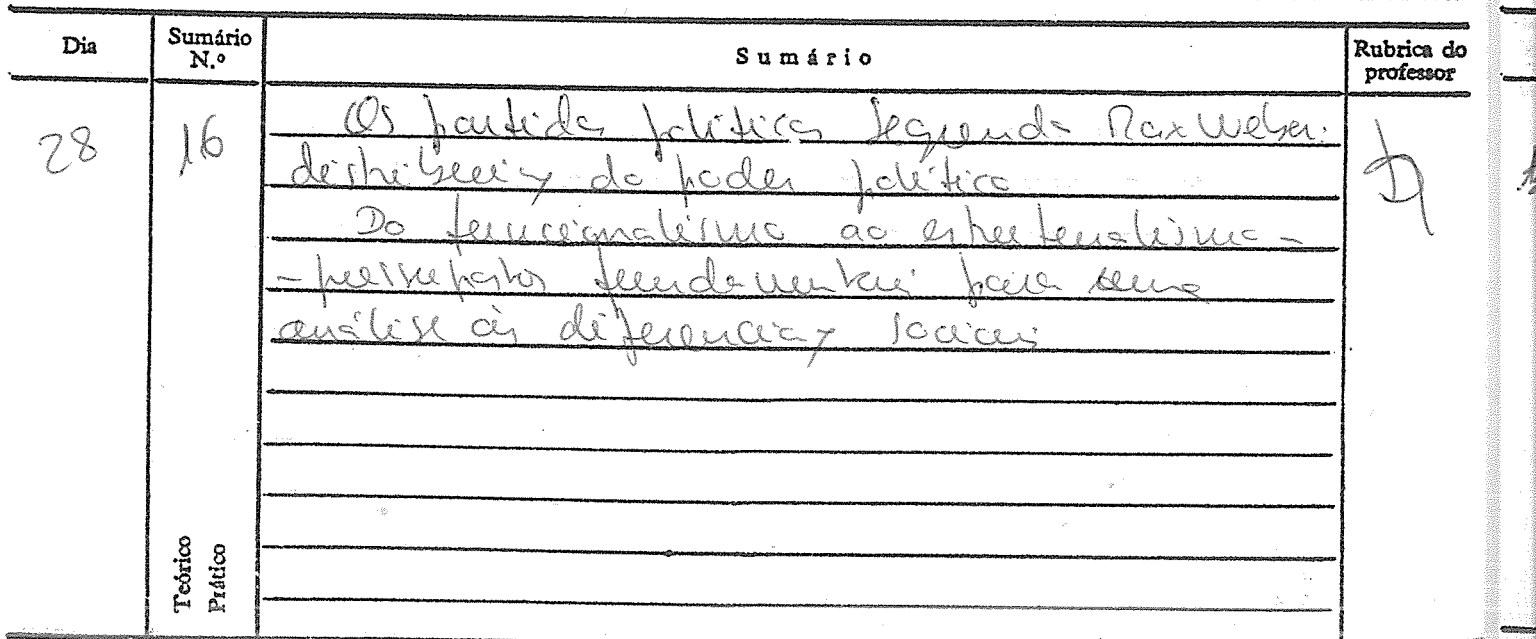 Dia
Sumário N.º
Sumário
Rubrica do professor
28
16
Os partidos políticos segundo Max Weber:
distribuição do poder político
Do funcionalismo ao estruturalismo -
- pressupostos fundamentais para uma
análise às diferenciações sociais
Teórico
Prático